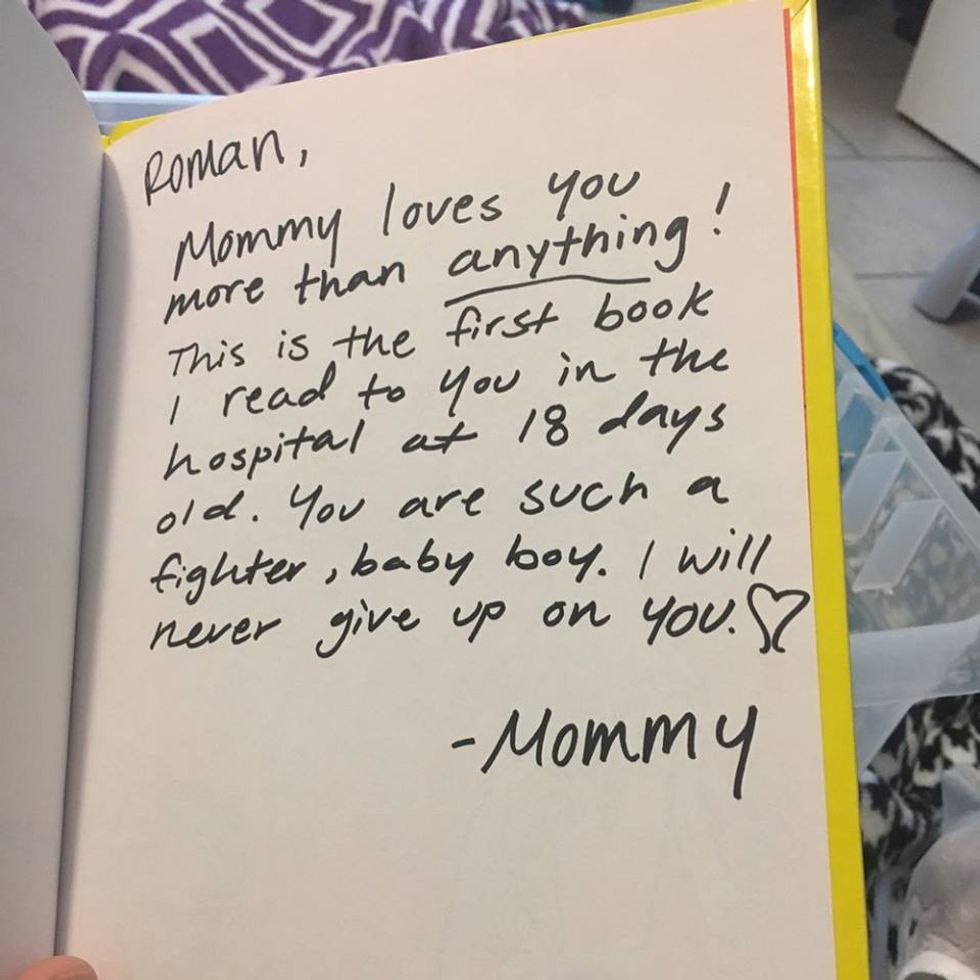 Roman,
Mommy loves you
more than anything!
This is the first book
I read to you in the
hospital at 18 days
old. You are such a
fighter, baby boy. I will
never give up on you.♡
-Mommy